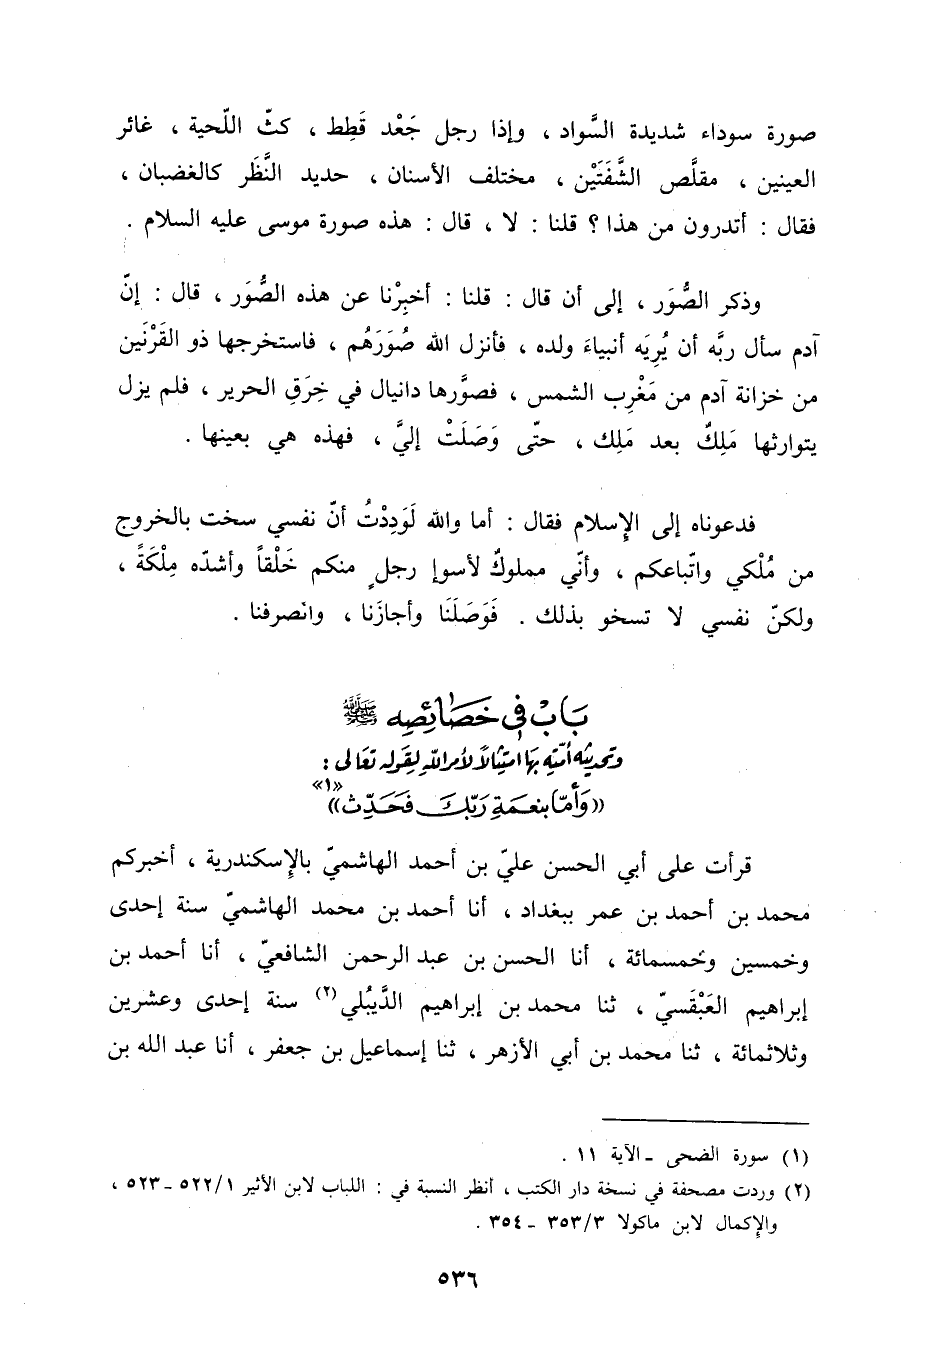 صورة سوداء شديدة السَّواد ، وإذا رجل جَعْد قَطِط ، كثّ اللّحية ، غائر
العينين ، مقلَّص الشَّفَتَيْن ، مختلف الأسنان ، حديد النَّظَر كالغضبان ،
فقال : أتدرون من هذا ؟ قلنا : لا ، قال : هذه صورة موسى عليه السلام .
وذكر الصُّوَر ، إلى أن قال : قلنا : أخبِرْنا عن هذه الصُّوَر ، قال : إنّ
آدم سأل ربَّه أن يُرِيَه أنبياءَ ولده ، فأنزل الله صُوَرَهُم ، فاستخرجها ذو القَرْنَين
من خزانة آدم من مَغْرِب الشمس ، فصوَّرها دانيال في خِرَقِ الحرير ، فلم يزل
يتوارثها مَلِكٌ بعد مَلِك ، حتّى وَصَلَتْ إليَّ ، فهذه هي بعينها .
فدعوناه إلى الإِسلام فقال : أما والله لَوَدِدْتُ أنّ نفسي سخت بالخروج
من مُلْكي واتّباعكم ، وأنّي مملوكٌ لأسوإ رجلٍ منكم خَلْقاً وأشدّه مِلْكَةً ،
ولكنّ نفسي لا تسخو بذلك . فَوَصَلَنَا وأجازَنا ، وانْصرفنا .
بَابْ في خَصَائِصِه ﷺ
وتحديثه أمّته بِهَا امتِثَالاً لأمر اللهِ لِقَوله تعَالى :
«وَأَمّا بنعمَة رَبّكَ فَحَدِّث» «١»
قرأت على أبي الحسن عليّ بن أحمد الهاشميّ بالإِسكندرية ، أخبركم
محمد بن أحمد بن عمر ببغداد ، أنا أحمد بن محمد الهاشميّ سنة إحدى
وخمسين وخمسمائة ، أنا الحسن بن عبد الرحمن الشافعيّ ، أنا أحمد بن
إبراهيم العَبْقَسيّ ، ثنا محمد بن إبراهيم الدَّيبُلي (٢) سنة إحدى وعشرين
وثلاثمائة ، ثنا محمد بن أبي الأزهر ، ثنا إسماعيل بن جعفر ، أنا عبد الله بن
(١) سورة الضحى ـ الآية ١١ .
(٢) وردت مصحفة في نسخة دار الكتب ، أنظر النسبة في : اللباب لابن الأثير ٥٢٢/١ ـ ٥٢٣ ،
والإِكمال لابن ماكولا ٣٥٣/٣ ـ ٣٥٤ .
٥٣٦